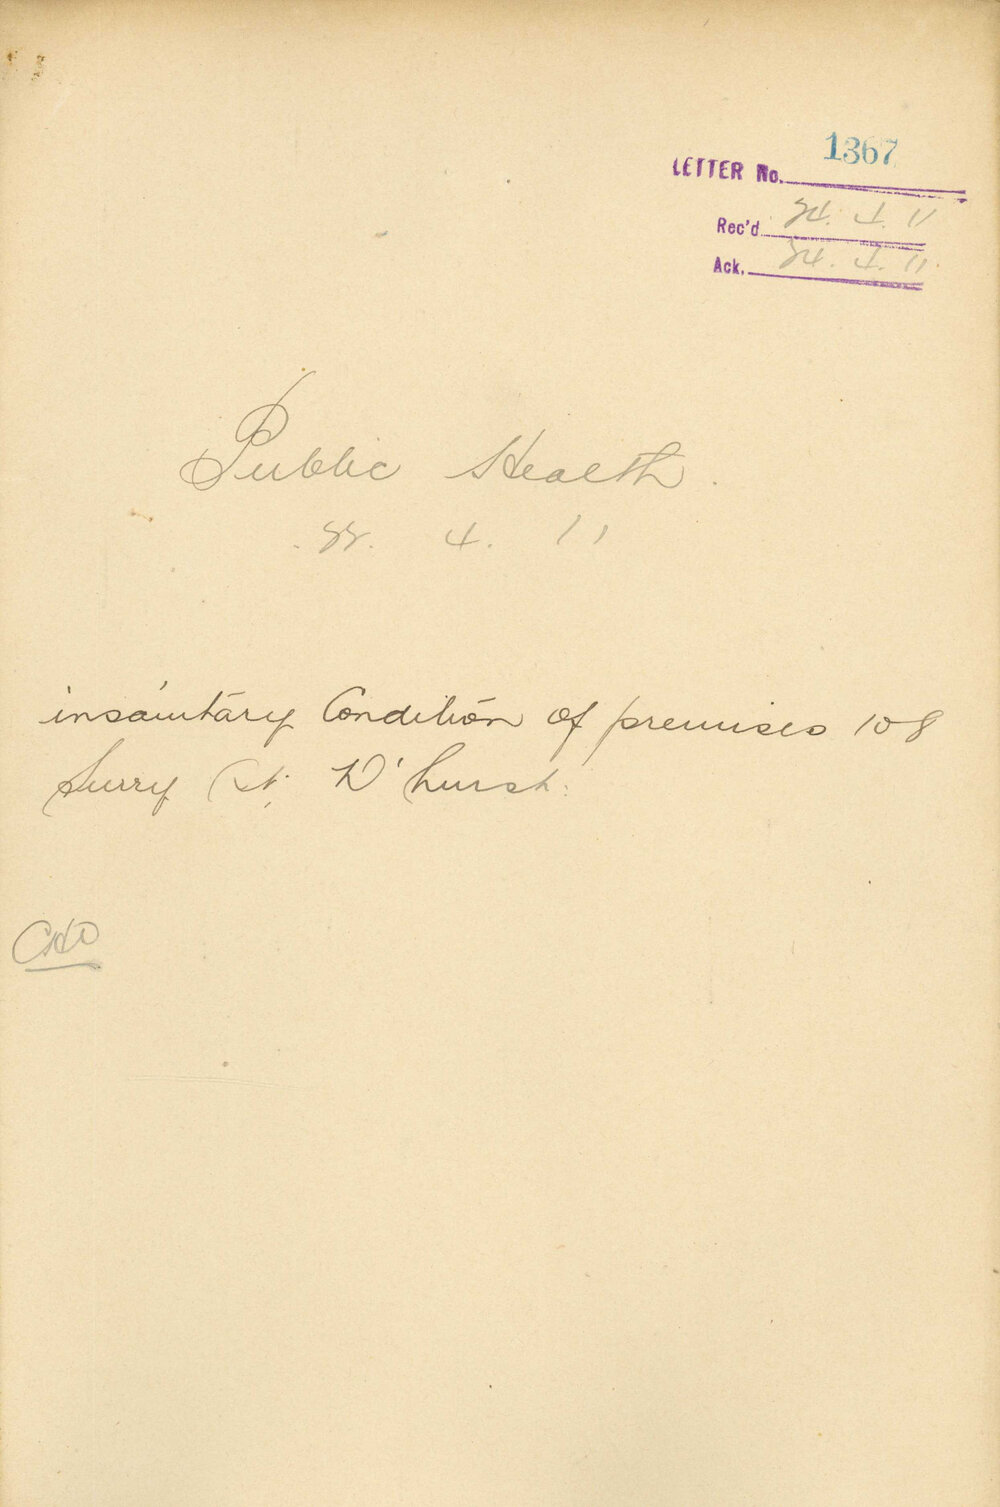 LETTER No. 1367
Rec'd 24. 4. 11
Ack. 24. 4. 11.
Public Health.
22. 4. 11
insanitary Condition of premises 108
Surry St, D'hurst.